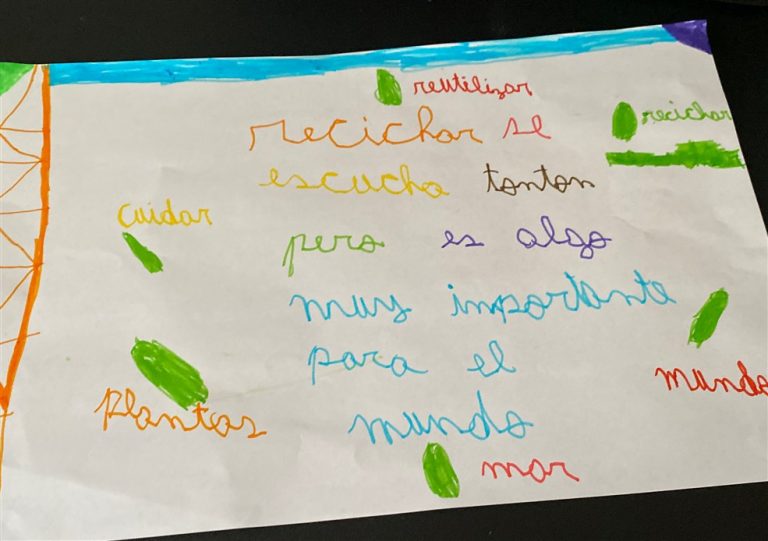 reutilizar
recichar
recichar se
escucha tonton
cuidar
pero es algo
muy importante
para el
mundo
plantas
mundo
mar